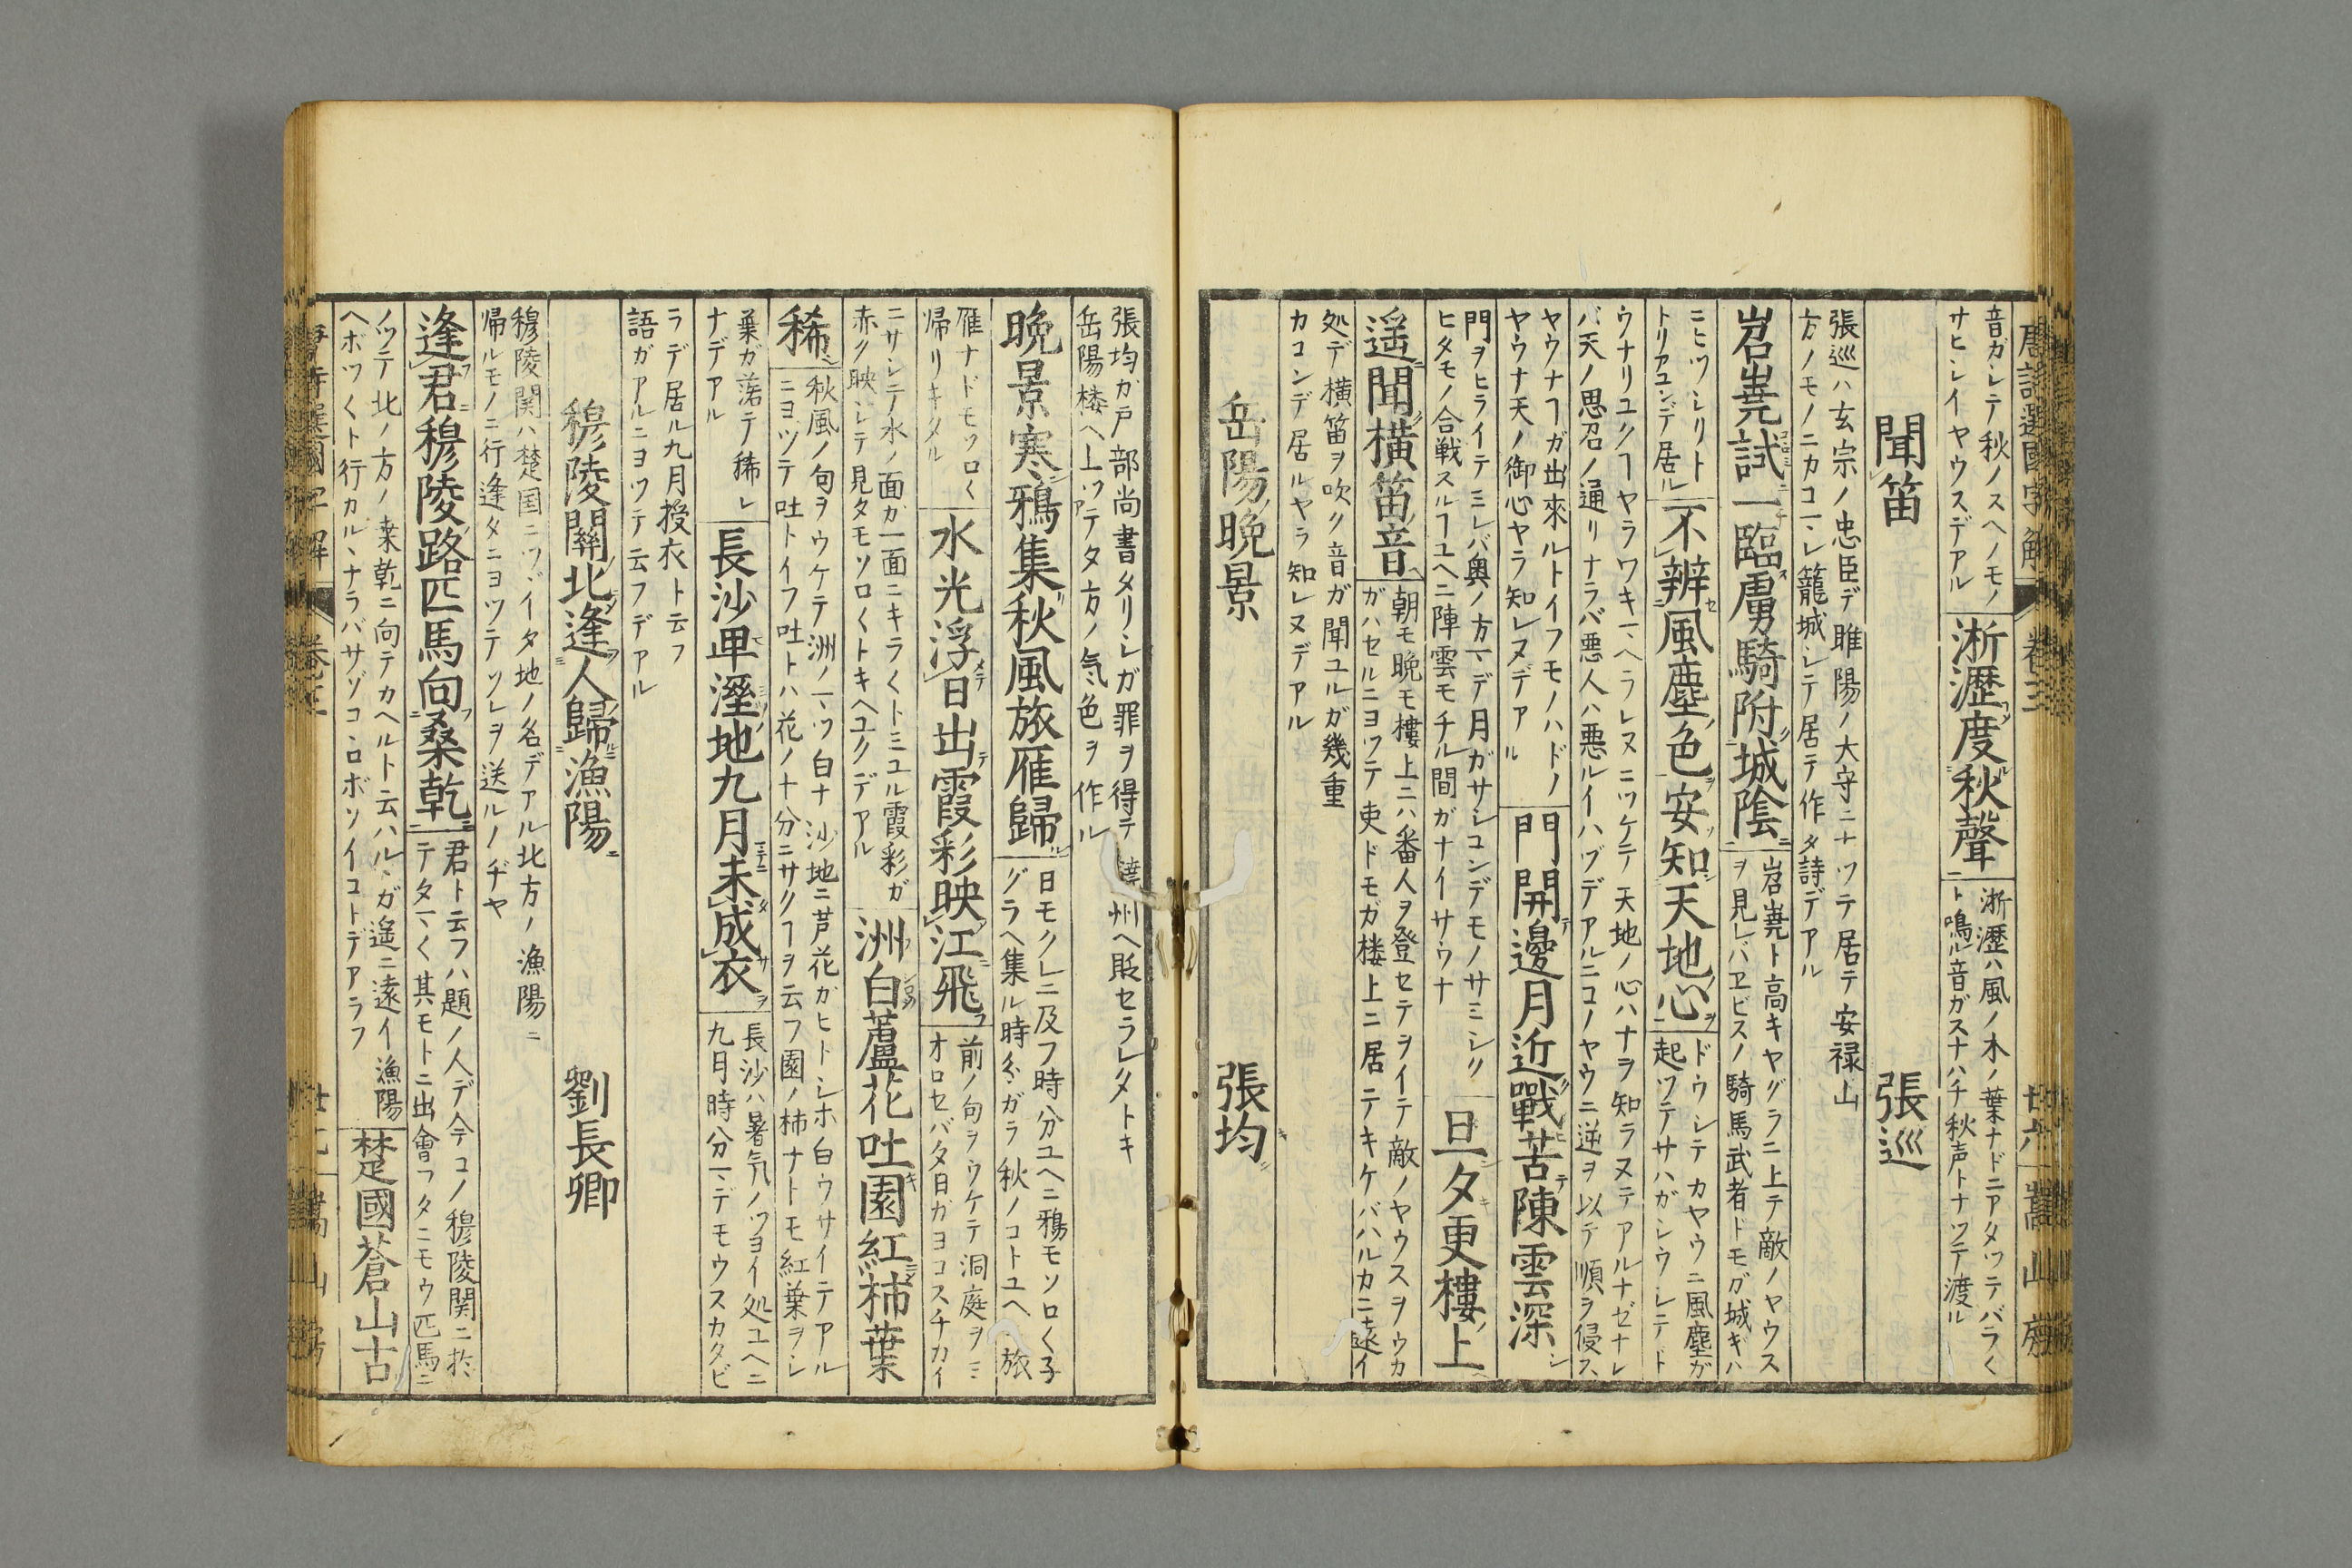 唐詩選國字解 卷三 廿六 嵩山房
音ガシテ秋ノスヘノモノ
サヒシイヤウスデアル
淅瀝度秋聲
淅瀝ハ風ノ木ノ葉ナドニアタツテバラ〱
ト鳴ル音ガスナハチ秋声トナツテ渡ル
聞笛 張巡
張巡ハ玄宗ノ忠臣デ睢陽ノ大守ニナツテ居テ安禄山
方ノモノニカコマレ籠城シテ居テ作タ詩デアル
岧嶤試一臨虜騎附城陰
岧嶤ト高キヤグラニ上テ敵ノヤウス
ヲ見レバヱビスノ騎馬武者ドモガ城ギハ
ニヒツシリト
トリアユンデ居ル
不辨風塵色安知天地心
ドウシテカヤウニ風塵ガ
起ツテサハガシウシテド
ウナリユクヿヤラワキマヘラレヌニツケテ天地ノ心ハナヲ知ラヌテアルナゼナレ
バ天ノ思召ノ通リナラバ悪人ハ悪ルイハヅデアルニコノヤウニ逆ヲ以テ順ヲ侵ス
ヤウナヿガ出來ルトイフモノハドノ
ヤウナ天ノ御心ヤラ知レヌデアル
門開邊月近戰苦陳雲深
門ヲヒライテミレバ奥ノ方マデ月ガサシコンデモノサミシク
ヒタモノ合戦スルヿユヘニ陣雲モチル間ガナイサウナ
旦夕更樓上
遥聞横笛音
朝モ晩モ樓上ニハ番人ヲ登セテヲイテ敵ノヤウスヲウカ
ガハセルニヨツテ吏ドモガ楼上ニ居テキケバハルカニ遠イ
処デ横笛ヲ吹ク音ガ聞ユルガ幾重
カコンデ居ルヤラ知レヌデアル
岳陽晩景 張均
張均ガ戸部尚書タリシガ罪ヲ得テ 州ヘ貶セラレタトキ
岳陽楼ヘ上ツテタ方ノ気色ヲ作ル
晩景寒鴉集秋風旅雁歸
日モクレニ及フ時分ユヘニ鴉モソロ〱子
グラヘ集ル時分ガラ秋ノコトユヘ旅
雁ナドモソロ〱
帰リキタル
水光浮日出霞彩映江飛
前ノ句ヲウケテ洞庭ヲミ
オロセバタ日ガヨコスヂカイ
ニサシテ水ノ面カ一面ニキラ〱トミユル霞彩ガ
赤ク映シテ見タモソロ〱トキヘユクデアル
洲白蘆花吐園紅柿葉
稀
秋風ノ句ヲウケテ洲ノマハリ白ナ沙地ニ芦花ガヒトシホ白ウサイテアル
ニヨツテ吐トイフ吐トハ花ノ十分ニサクヿヲ云フ園ノ柿ナトモ紅葉ヲシ
葉ガ落テ稀レ
ナデアル
長沙卑溼地九月未成衣
長沙ハ暑気ノツヨイ処ユヘニ
九月時分マデモウスカタビ
ラデ居ル九月授衣ト云フ
語ガアルニヨツテ云フデアル
穆陵關北逢人歸漁陽 劉長卿
穆陵関ハ楚国ニツヾイタ地ノ名デアル北方ノ漁陽ニ
帰ルモノニ行逢タニヨツテソレヲ送ルノヂヤ
逢君穆陵路匹馬向桑乾
君ト云フハ題ノ人デ今コノ穆陵関ニ於
テタマ〱其モトニ出會フタニモウ匹馬ニ
ノツテ北ノ方ノ桑乾ニ向テカヘルト云ハルヽガ遥ニ遠イ漁陽
ヘボツ〱ト行カルヽナラバサゾコヽロボソイコトデアラフ
楚國蒼山古
卷三 嵩山房